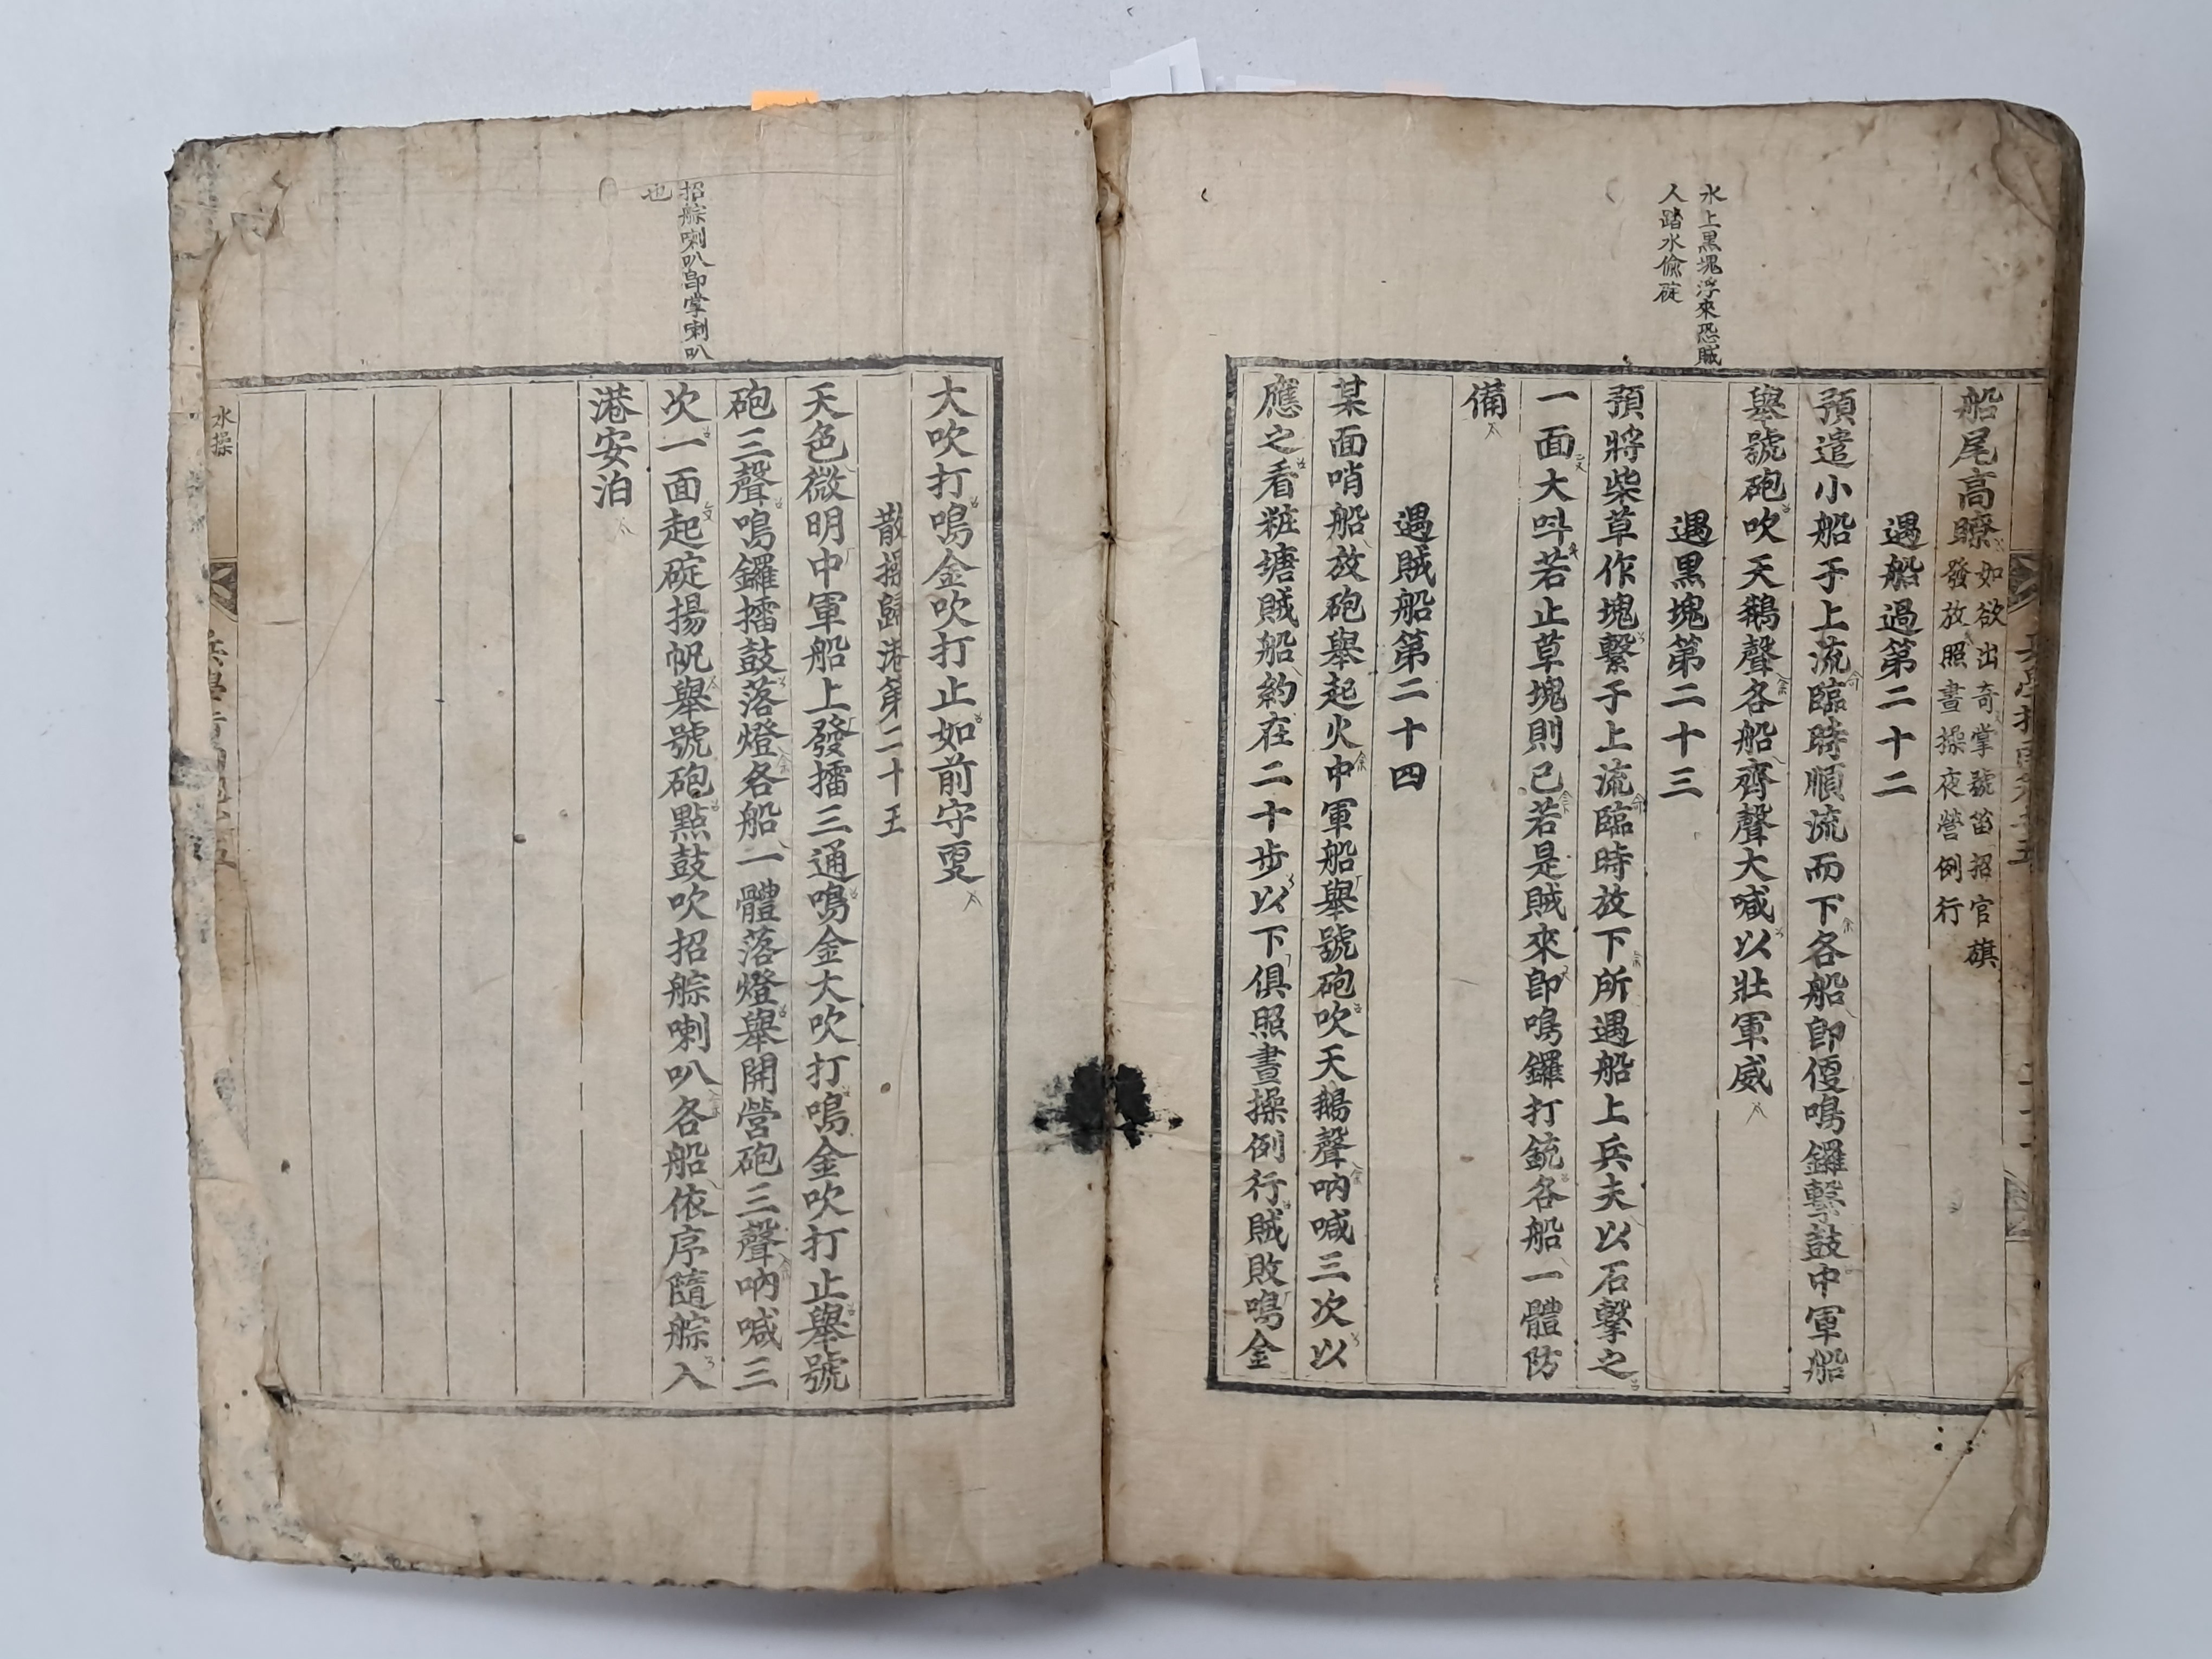 水上黑塊浮來恐賊
人踏水偸碇
船尾高瞭如欲出奇掌號笛招官旗
發放照晝操夜營例行
遇船過第二十二
預遣小船于上流臨時順流而下各船卽傻鳴鑼擊鼓中軍船
擧號砲吹天鵝聲各船齊聲大喊以壯軍威
遇黑塊第二十三
預將柴草作塊繫于上流臨時放下所遇船上兵夫以石擊之
一面大呌若止草塊則已若是賊來卽鳴鑼打銃各船一體防
備
遇賊船第二十四
某面哨船放砲擧起火中軍船擧號砲吹天鵝聲吶喊三次以
應之看粧塘賊船約在二十步以下俱照晝操例行賊敗鳴金
招䑸喇叭卽掌喇叭
也
大吹打鳴金吹打止如前守更
散操歸港第二十五
天色微明中軍船上發擂三通鳴金大吹打鳴金吹打止擧號
砲三聲鳴鑼擂鼓落燈各船一體落燈擧開營砲三聲吶喊三
次一面起碇揚帆擧號砲點鼓吹招䑸喇叭各船依序隨䑸入
港安泊
水操